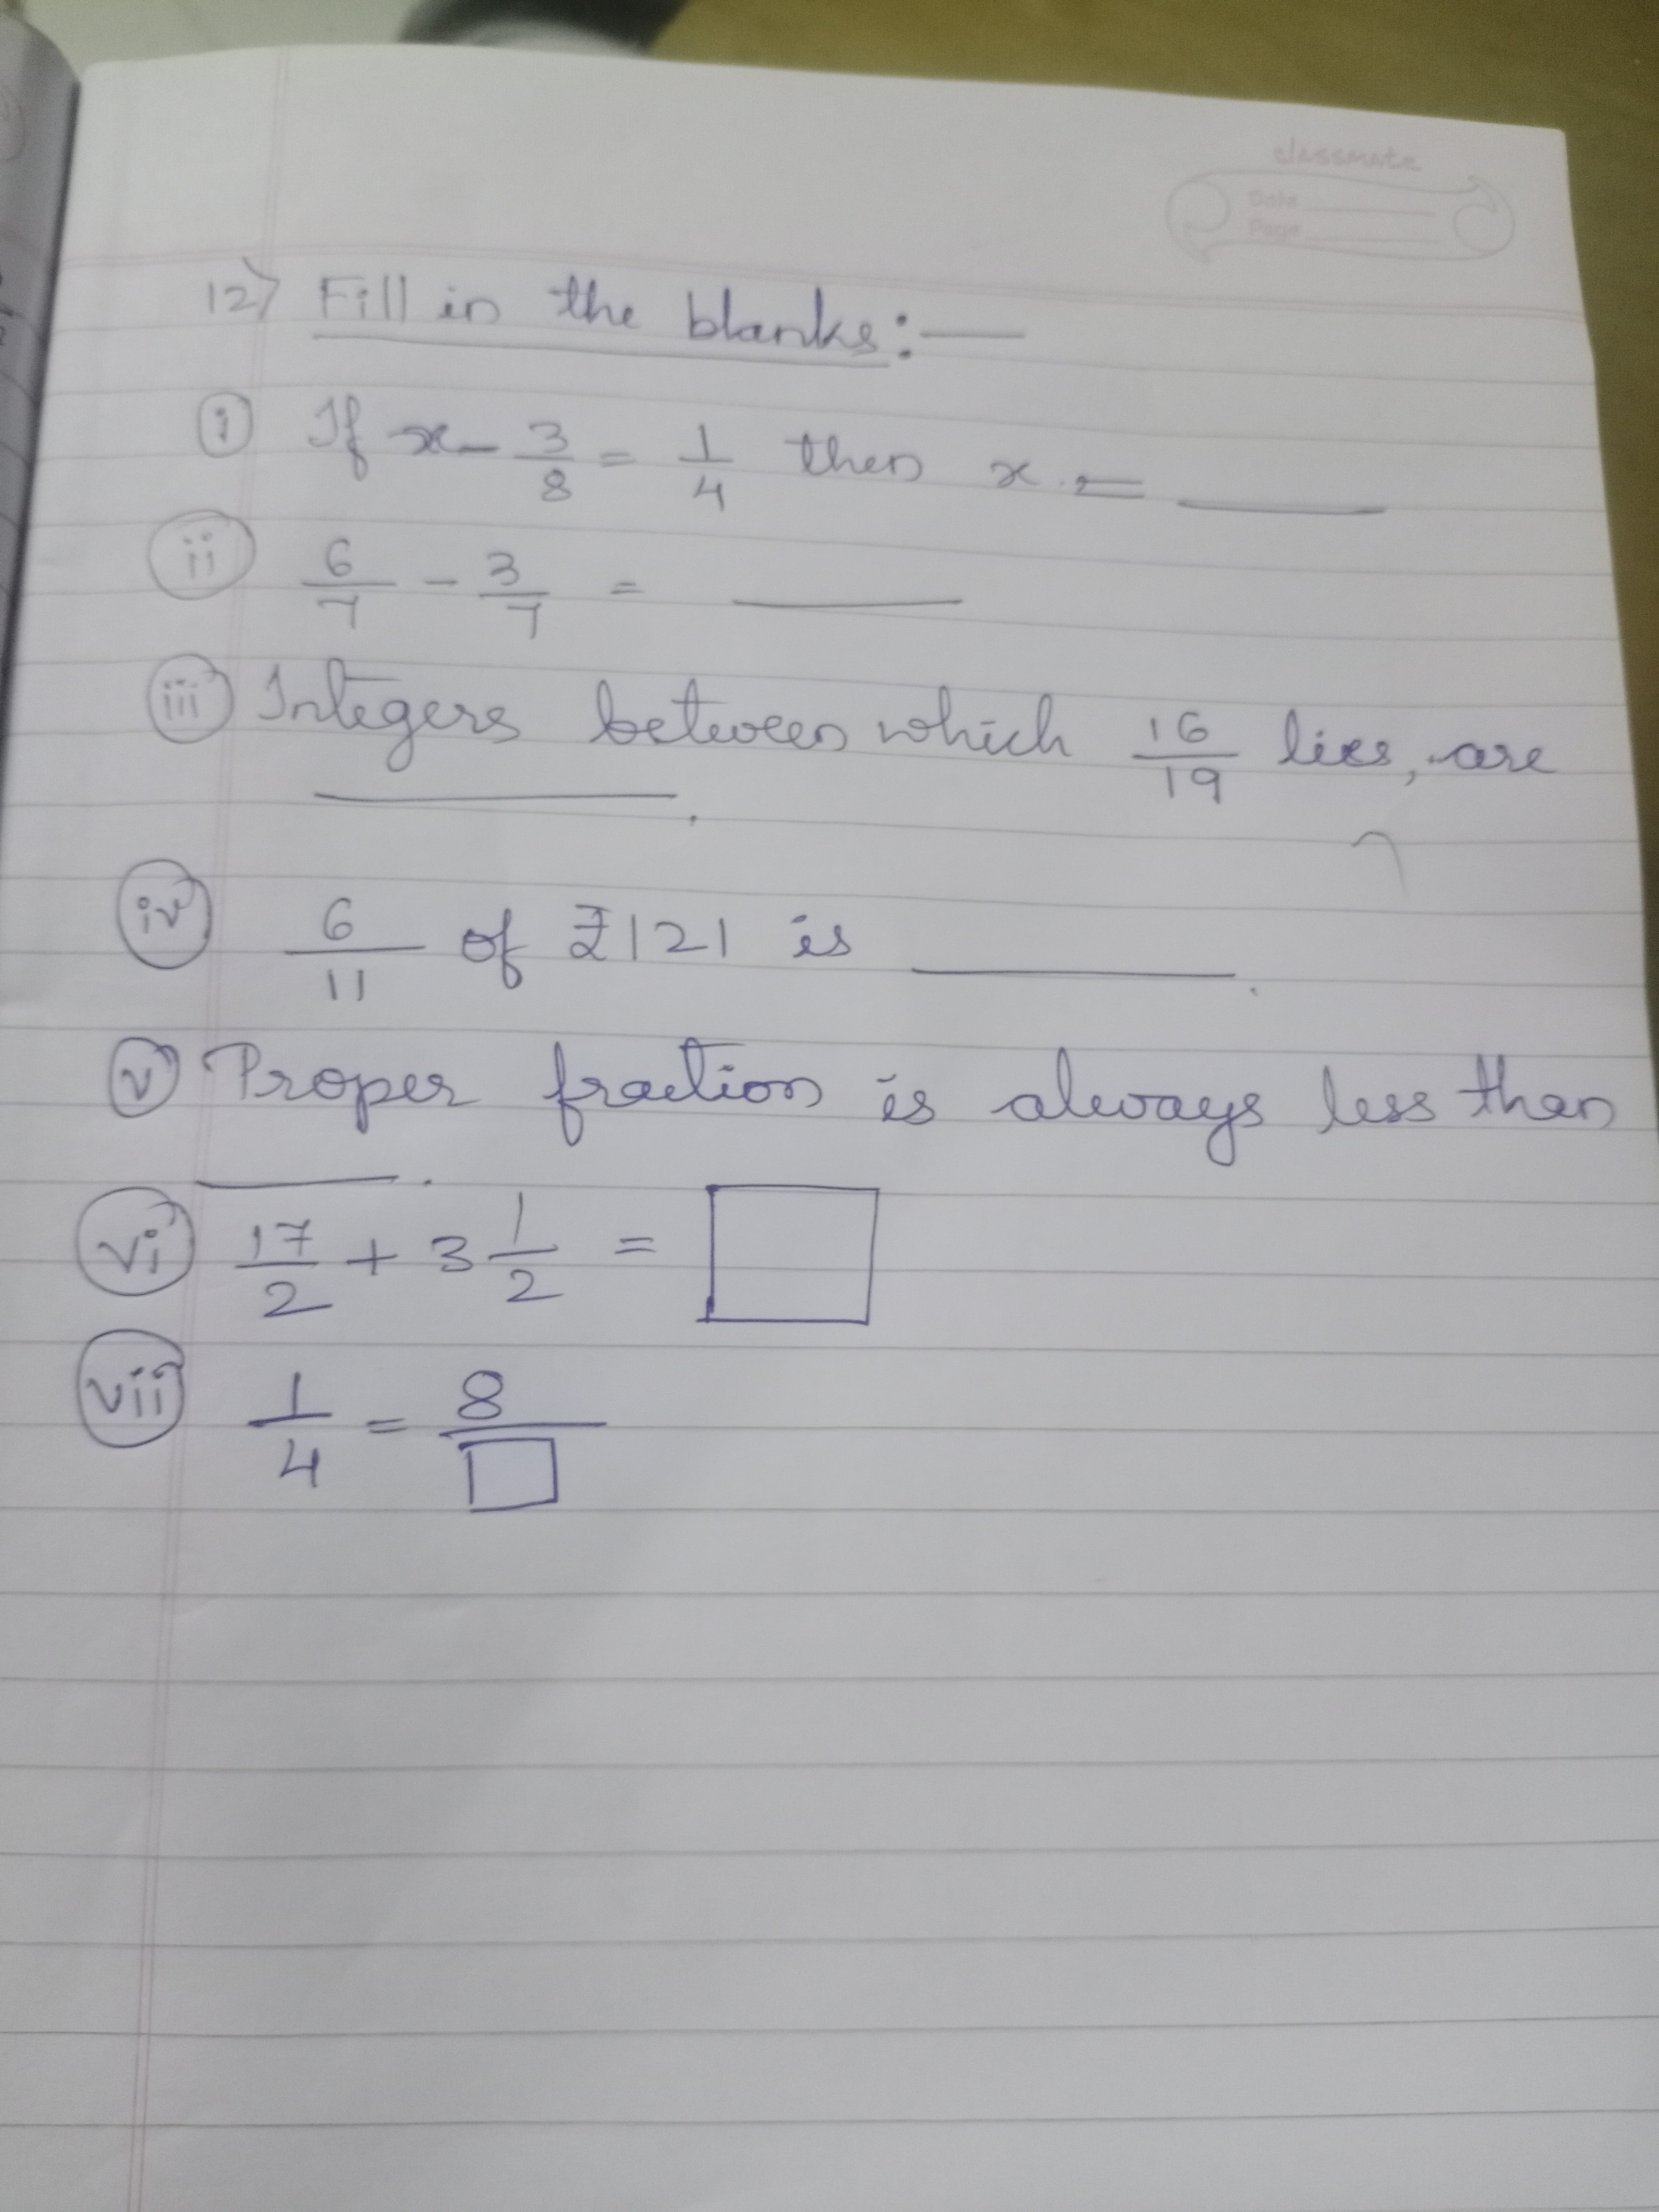 classmate
Date
Page
12) Fill in the blanks:—
i If x - 3/8 = 1/4 then x = ____
ii 6/7 - 3/7 = ____
iii Integers between which 16/19 lies, are
____.
iv 6/11 of ₹121 is ____.
v Proper fraction is always less than
____.
vi 17/2 + 3 1/2 = □
vii 1/4 = 8/□